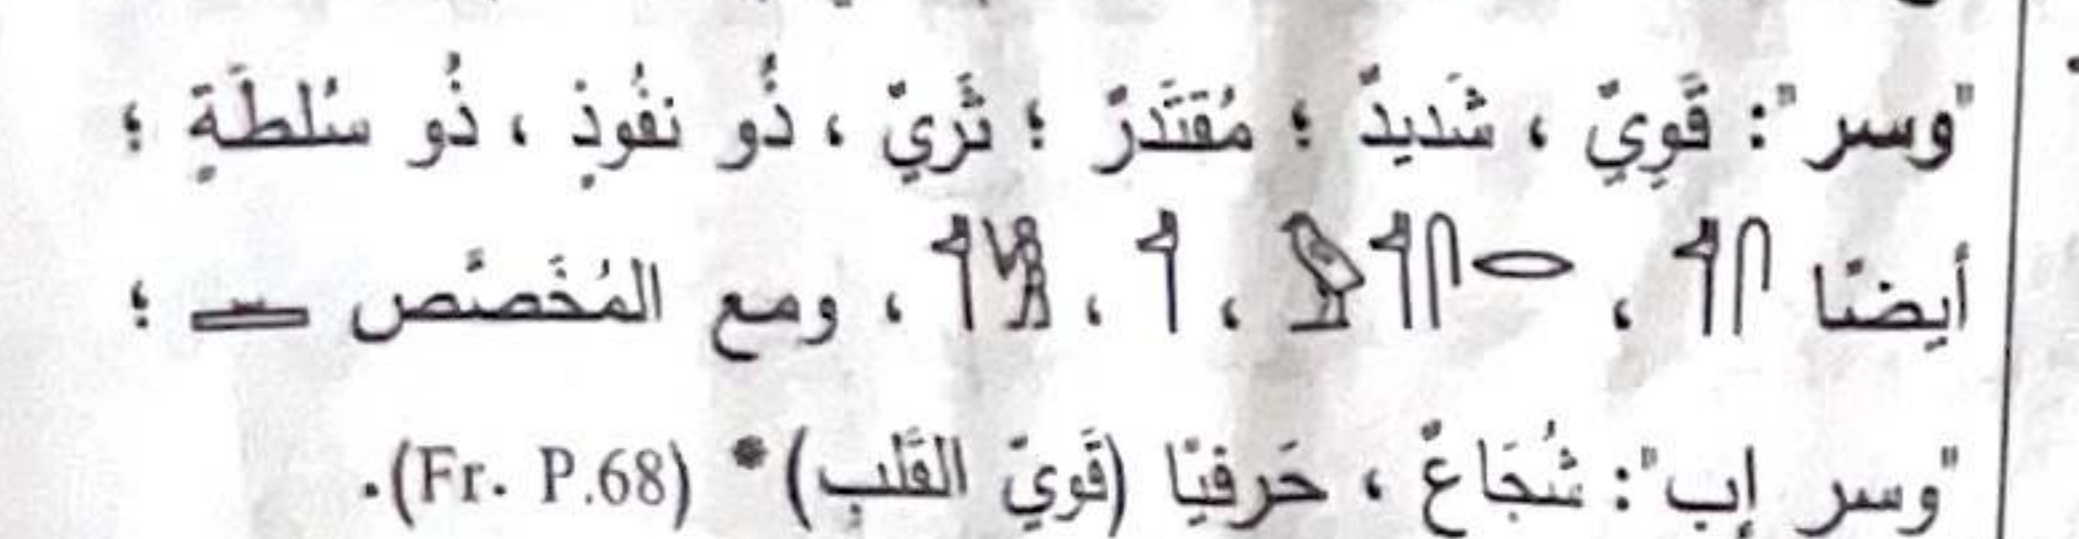 "وسر": قَوِيٌّ ، شَديدٌ ؛ مُقتَدَرٌ ؛ ثَرِيٌّ ، ذُو نفُوذٍ ، ذُو سُلطَةٍ ؛
أيضًا 𓄊𓋴 ، 𓂋𓋴𓄊𓀜 ، 𓄊 ، 𓄊𓀀 ، ومع المُخَصَّص 𓏛 ؛
"وسر إب": شُجَاعٌ ، حَرفيًا (قَويّ القَلبِ) * (Fr. P.68).